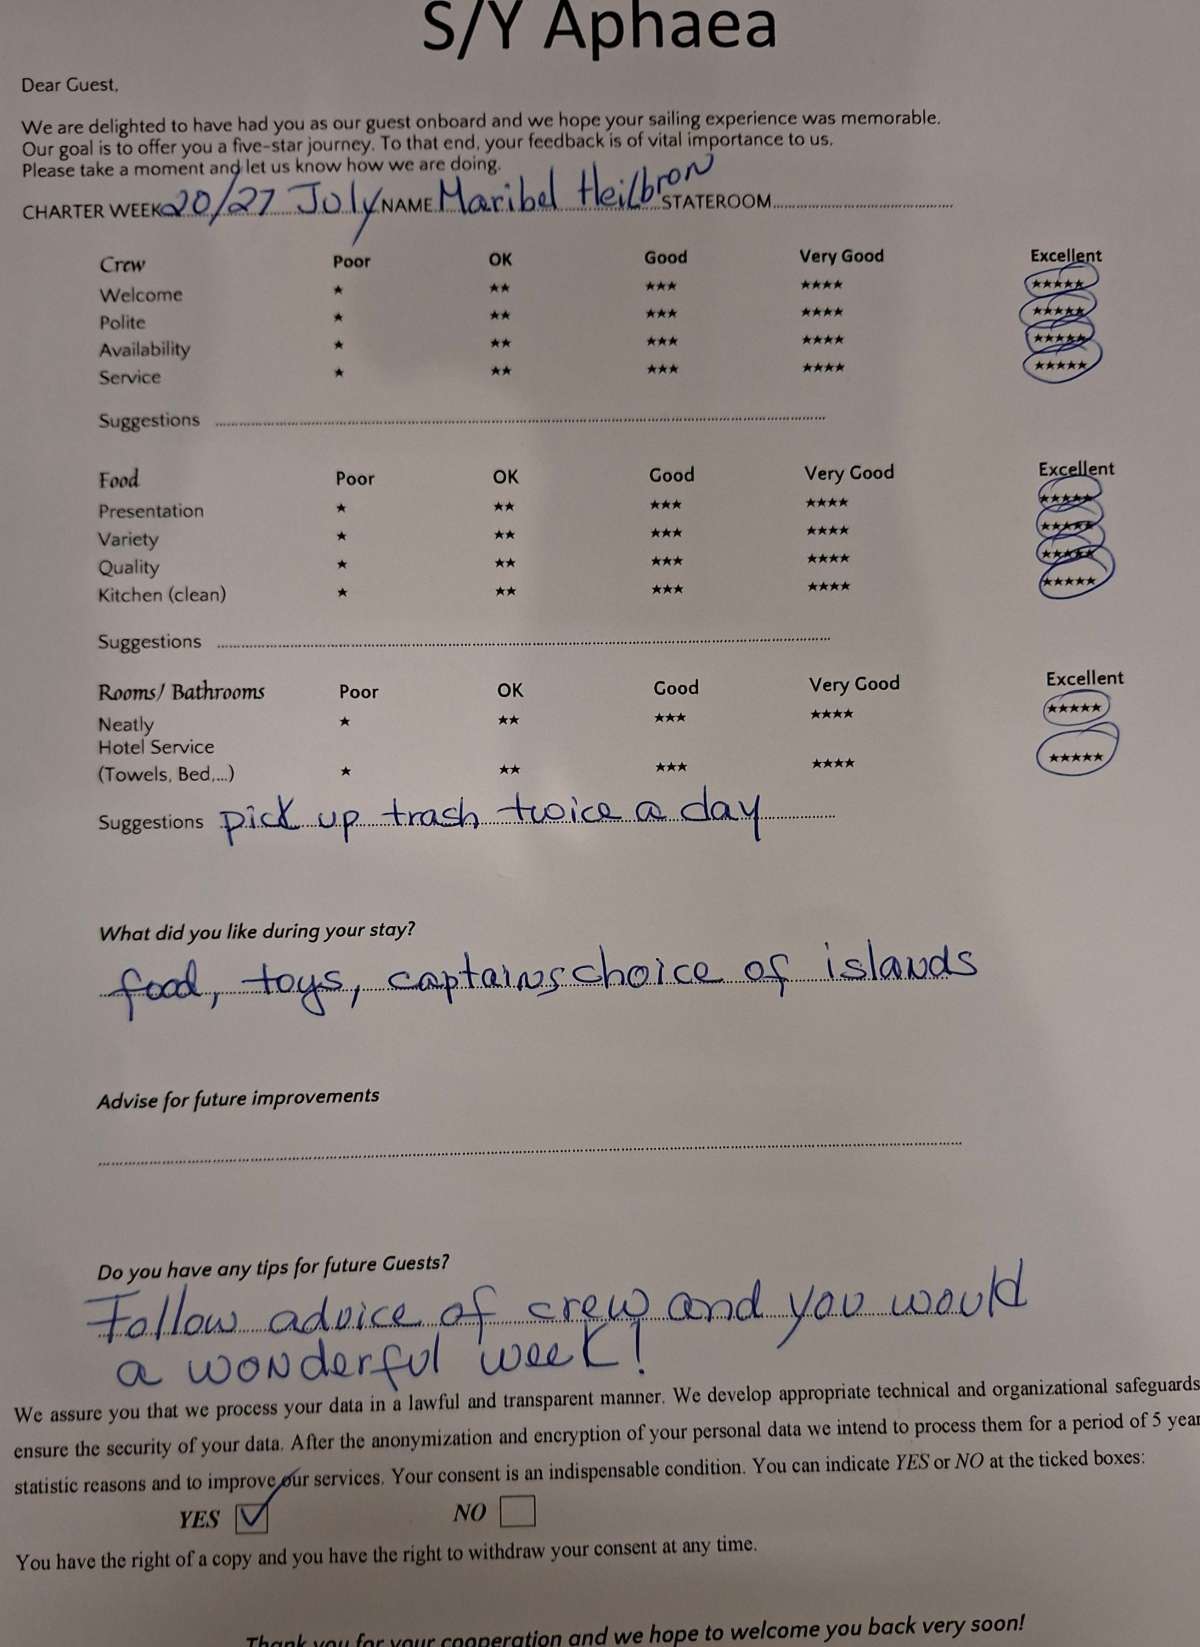 S/Y Aphaea
Dear Guest,
We are delighted to have had you as our guest onboard and we hope your sailing experience was memorable.
Our goal is to offer you a five-star journey. To that end, your feedback is of vital importance to us.
Please take a moment and let us know how we are doing.
CHARTER WEEK 20/27 July NAME Maribel Heilbron STATEROOM
Crew Poor OK Good Very Good Excellent
Welcome ★ ★★ ★★★ ★★★★ ★★★★★
Polite ★ ★★ ★★★ ★★★★ ★★★★★
Availability ★ ★★ ★★★ ★★★★ ★★★★★
Service ★ ★★ ★★★ ★★★★ ★★★★★
Suggestions
Food Poor OK Good Very Good Excellent
Presentation ★ ★★ ★★★ ★★★★ ★★★★★
Variety ★ ★★ ★★★ ★★★★ ★★★★★
Quality ★ ★★ ★★★ ★★★★ ★★★★★
Kitchen (clean) ★ ★★ ★★★ ★★★★ ★★★★★
Suggestions
Rooms/ Bathrooms Poor OK Good Very Good Excellent
Neatly ★ ★★ ★★★ ★★★★ ★★★★★
Hotel Service
(Towels, Bed,...) ★ ★★ ★★★ ★★★★ ★★★★★
Suggestions pick up trash twice a day
What did you like during your stay?
food, toys, captains choice of islands
Advise for future improvements
Do you have any tips for future Guests?
Follow advice of crew and you would
a wonderful week!
We assure you that we process your data in a lawful and transparent manner. We develop appropriate technical and organizational safeguards
ensure the security of your data. After the anonymization and encryption of your personal data we intend to process them for a period of 5 year
statistic reasons and to improve our services. Your consent is an indispensable condition. You can indicate YES or NO at the ticked boxes:
YES NO
You have the right of a copy and you have the right to withdraw your consent at any time.
Thank you for your cooperation and we hope to welcome you back very soon!